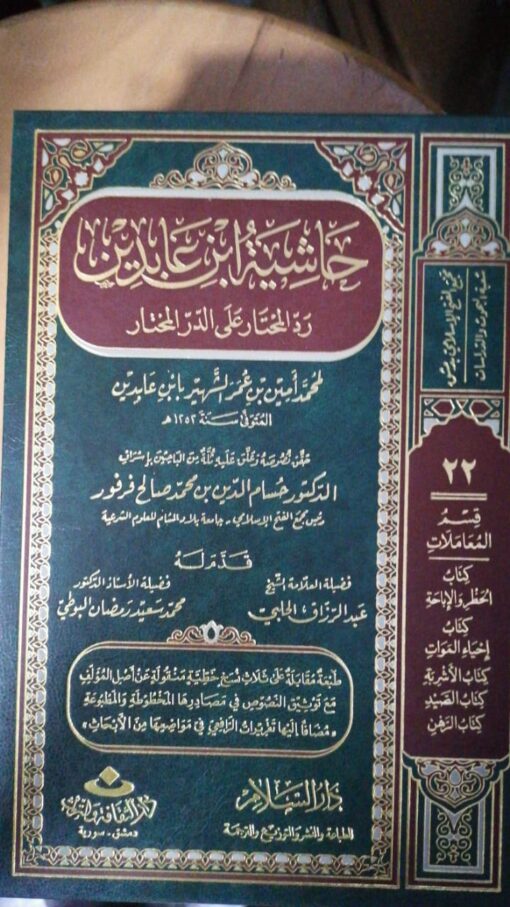 حَاشِيَةُ ابْنِ عَابِدِيْن
رَدّ المُحتَار عَلَى الدّر المُختَار
لمحمّد أمِين بن عُمَر الشَّهِير بابْنِ عَابِدِين
المتَوفّى سَنَة ١٢٥٢ هـ
حَقَّق نُصُوصَهُ وَعَلّق عَلَيهِ ثُلَّةٌ مِنَ البَاحِثِين بإشراف
الدكتور حسَام الدّين بن محمّد صَالح فرفور
رئيس مجمّع الفتح الإسلامي - جَامعَة بلاد الشام للعلوم الشرعيّة
قَدّمَ لَهُ
فضيلة العلّامة الشيخ
عبد الرزاق الحلبي
فضيلة الأستاذ الدكتور
محمّد سَعيد رَمضَان البوطي
طَبعَة مُقَابَلَة عَلَى ثَلَاث نُسَخٍ خَطِّيّةٍ مَنقُولَةٍ عَن أَصلِ المُؤَلِّفِ
مَعَ تَوثيقِ النُّصُوصِ في مَصَادِرِهَا المَخطُوطَةِ وَالمَطبُوعَةِ
« مُضَافًا إليهَا تَقْرِيرَات الرَّافِعِيّ في مَوَاضِعِهَا مِنَ الأبحَاثِ »
دَارُ السَّلَام
للطباعة والنشر والتوزيع والترجمة
دار الثقافة والتراث
دمشق - سورية
مجمع الفتح الإسلامي بدمشق
شعبة البحوث والدراسات
٢٢
قِسْمُ
المُعَامَلَات
كِتَابُ
الحَظْرِ وَالإبَاحَةِ
كِتَابُ
إحْيَاءِ المَوَاتِ
كِتَابُ الأَشْرِبَةِ
كِتَابُ الصَّيْدِ
كِتَابُ الرَّهْنِ